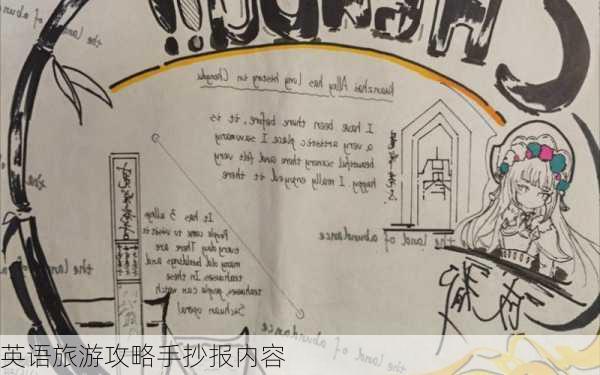 CHENGDU!!
the land of abun
Kuanzhai Alley has long history in Chengdu
I have been there before, it is
a very artistic place I saw many
beautiful scenery there and felt very
happy. I really enjoyed it there
the land of abundance
It has 3 alleys
People came to visit it
every day There are
many old buildings and
teahouses. In these
teahouses, people can watch
Sichuan opera
the land of
the land of abundance
成都
英语旅游攻略手抄报内容